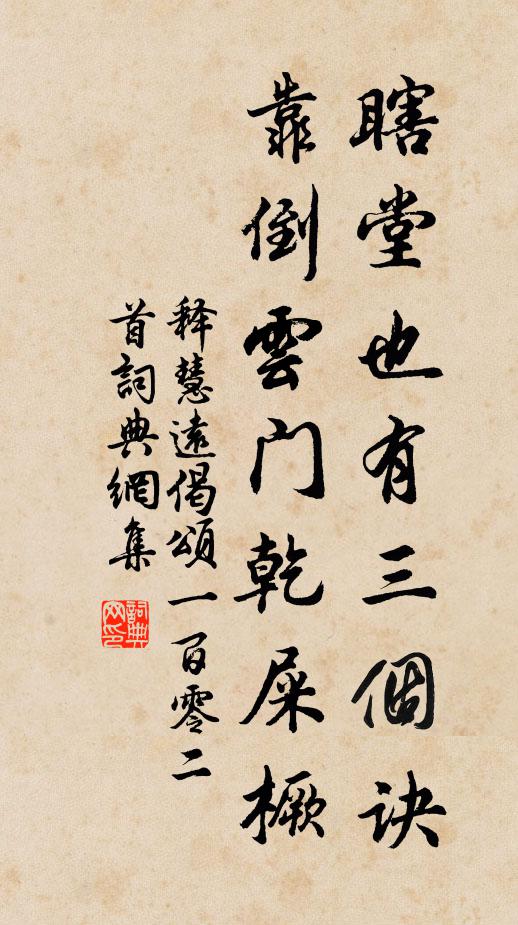 瞎堂也有三個訣
靠倒雲門乾屎橛
释慧遠偈頌一百零二
首詞典網集
詞典网印